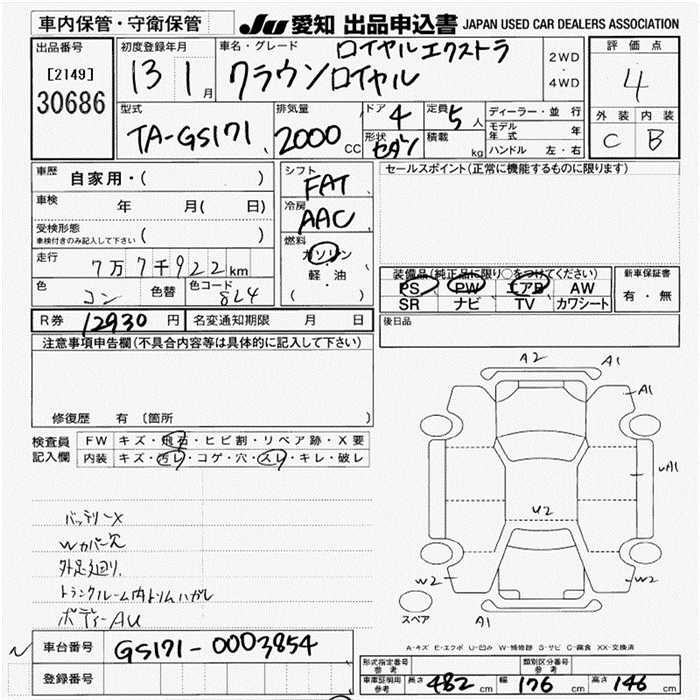 車内保管・守衛保管
JU 愛知 出品申込書 JAPAN USED CAR DEALERS ASSOCIATION
出品番号
[2149]
30686
初度登録年月
13 1月
車名・グレード
ロイヤルエクストラ
クラウンロイヤル
2WD
・
4WD
評価点
4
外装 内装
C B
型式
TA-GS171
排気量
2000 CC
ドア 4
定員 5人
形状 セダン
積載 kg
ディーラー・並行
モデル年式 年
ハンドル 左・右
車歴 自家用・( )
車検 年 月( 日)
受検形態
車検付きのみ記入して下さい ( )
走行 7万7千922km
色 コン 色替 色コード 8L4
シフト
FAT
冷房
AAC
燃料
ガソリン
・
軽油
( )
セールスポイント(正常に機能するものに限ります)
装備品(純正品に限り○をつけてください)
PS PW エアB AW
SR ナビ TV カワシート
新車保証書
有・無
R券 12930円 名変通知期限 月 日
後日品
注意事項申告欄(不具合内容等は具体的に記入して下さい)
修復歴 有 〔箇所 〕
検査員記入欄
FW キズ・飛石・ヒビ割・リペア跡・X要
内装 キズ・汚レ・コゲ・穴・スレ・キレ・破レ
バッテリーX
Wカバー欠
外足廻り、
トランクルーム内トリムハガレ
ボディーAU
A2 A1
A1
A1
U2
W2 W2
A1
スペア
A-キズ E-エクボ U-凹み W-補修跡 S-サビ C-腐食 XX-交換済
車台番号 GS171-0003854
登録番号
形式指定番号 参考
類別区分番号 参考
車庫証明用 参考 長さ 482cm 幅 176cm 高さ 146cm